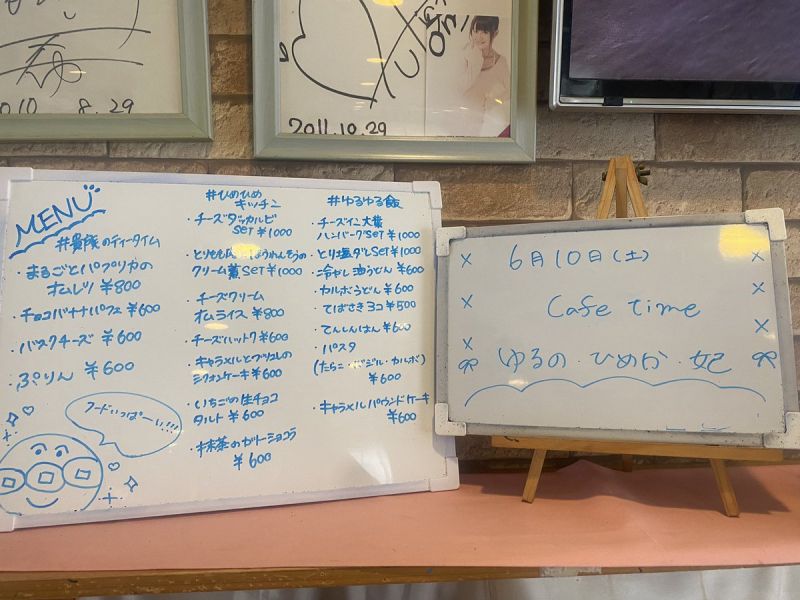 2010 8.29
2011.10.29
MENU
#貴腐のティータイム
・まるごとパプリカの
オムレツ ¥800
・チョコバナナパフェ ¥600
・バスクチーズ ¥600
・ぷりん ¥600
フードいっぱーい!!!
#ひめひめ
キッチン
・チーズダッカルビ
SET ¥1000
・とりももとほうれんそうの
クリーム煮SET ¥1000
・チーズクリーム
オムライス ¥800
・チーズハットク ¥600
・キャラメルとクルミの
シフォンケーキ ¥600
・いちごの生チョコ
タルト ¥600
・抹茶のガトーショコラ
¥600
#ゆるゆる飯
・チーズイン大葉
ハンバーグSET ¥1000
・とり塩ダレSET ¥1000
・冷やし油うどん ¥600
・カルボうどん ¥600
・てばさき3コ ¥500
・てんしんはん ¥600
・パスタ
(たらこ・バジル・カルボ)
¥600
・キャラメルパウンドケーキ
¥600
6月10日(土)
Cafe time
ゆるの・ひめか・妃